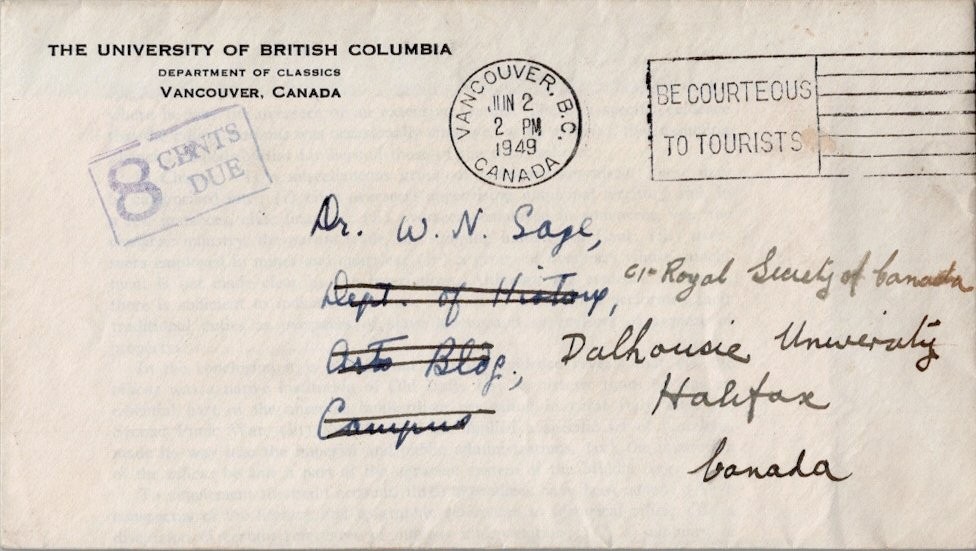 THE UNIVERSITY OF BRITISH COLUMBIA
DEPARTMENT OF CLASSICS
VANCOUVER, CANADA
8 CENTS
DUE
VANCOUVER, B.C.
JUN 2
2 PM
1949
CANADA
BE COURTEOUS
TO TOURISTS
Dr. W. N. Sage,
Dept. of History,
Arts Bldg,
Campus
c/o Royal Society of Canada
Dalhousie University
Halifax
Canada